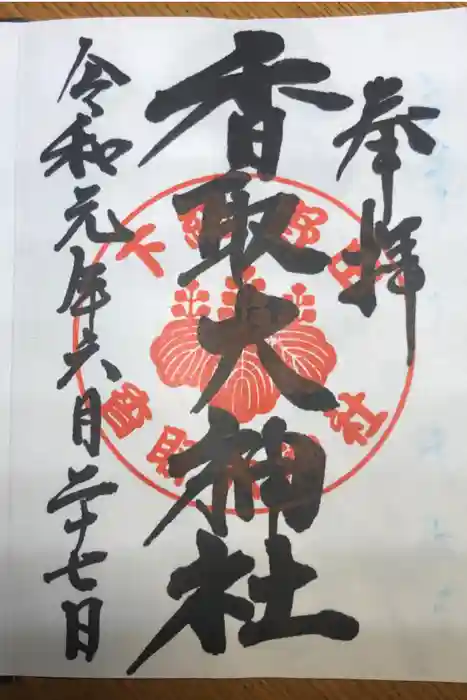 奉拝
香取大神社
令和元年六月二十七日